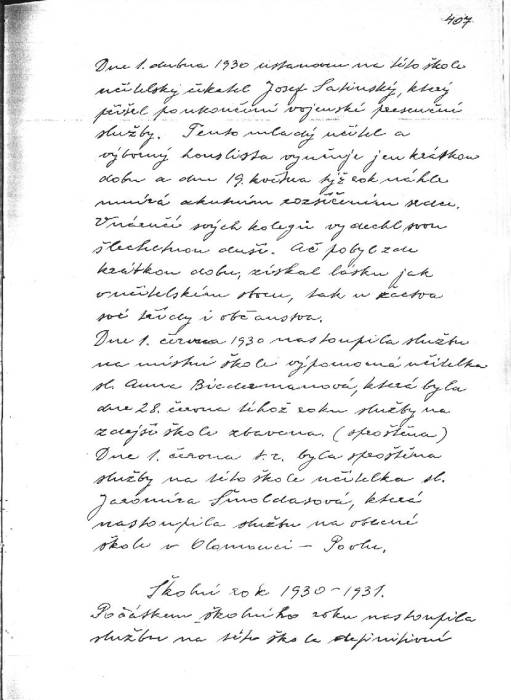 407
Dne 1. dubna 1930 ustanoven na této škole
učitelský čekatel Josef Satinský, který
přišel po ukončení vojenské presenční
služby. Tento mladý učitel a
výborný houslista vyučuje jen krátkou
dobu a dne 19. května týž rok náhle
umírá akutním rozšířením srdce.
V náručí svých kolegů vydechl svou
šlechetnou duši. Ač pobyl zde
krátkou dobu, získal lásku jak
v učitelském sboru, tak u žactva
své třídy i občanstva.
Dne 1. června 1930 nastoupila službu
na místní škole výpomocná učitelka
sl. Anna Biedermanová, která byla
dne 28. června téhož roku služby na
zdejší škole zbavena. (sproštěna)
Dne 1. června t.r. byla sproštěna
služby na této škole učitelka sl.
Jaromíra Šmoldasová, která
nastoupila službu na obecné
škole v Olomouci – Povlu.
Školní rok 1930–1931.
Počátkem školního roku nastoupila
službu na této škole definitivní